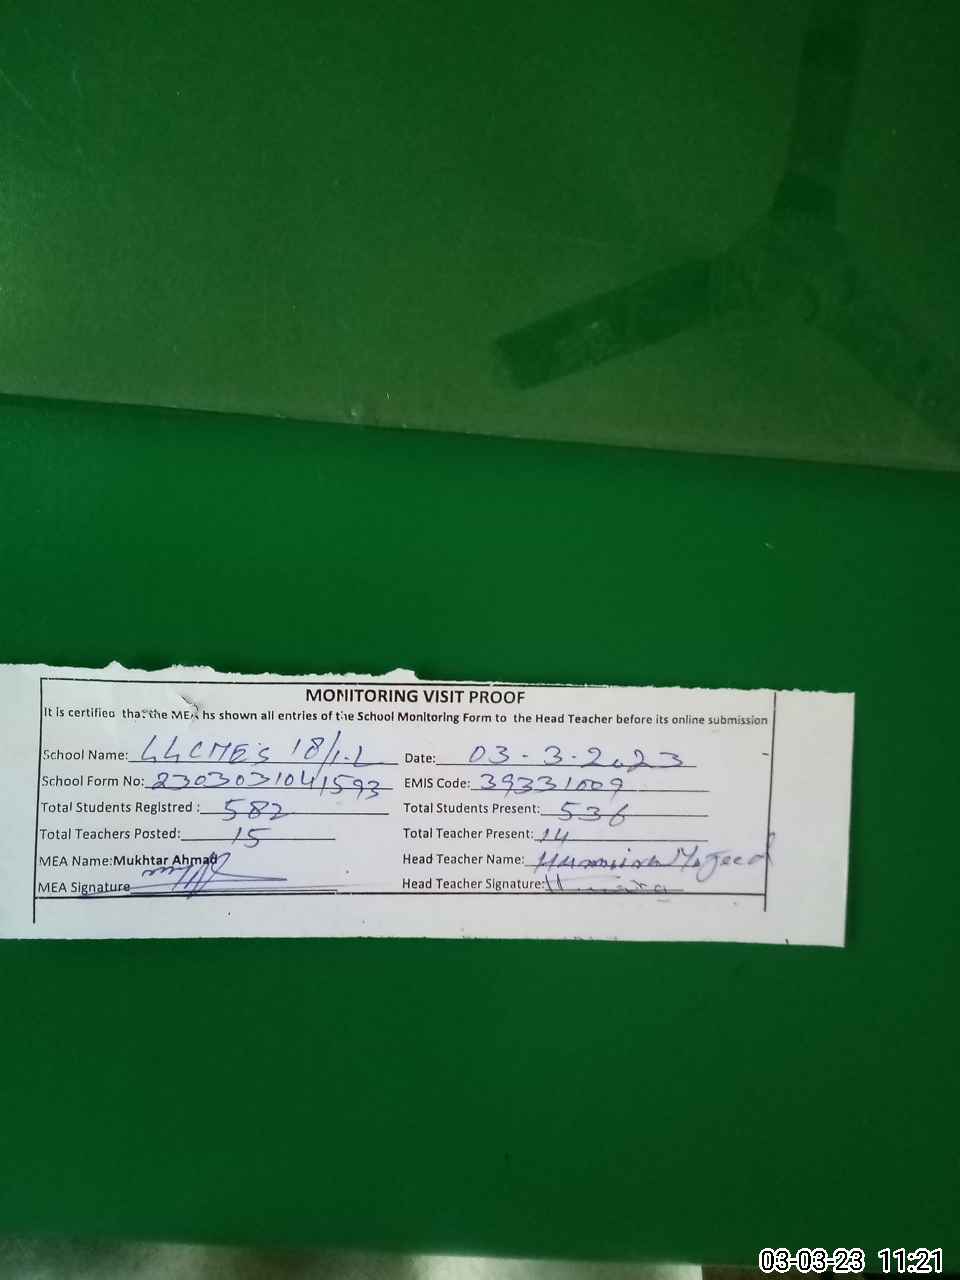 MONITORING VISIT PROOF
It is certified that the MEA hs shown all entries of the School Monitoring Form to the Head Teacher before its online submission
School Name: 18/1.L Date: 03-3-2023
School Form No: 2303031041593 EMIS Code: 39331009
Total Students Registred : 582 Total Students Present: 536
Total Teachers Posted: 15 Total Teacher Present: 14
MEA Name: Mukhtar Ahmad Head Teacher Name: Majeed
MEA Signature Head Teacher Signature:
03-03-23 11:21